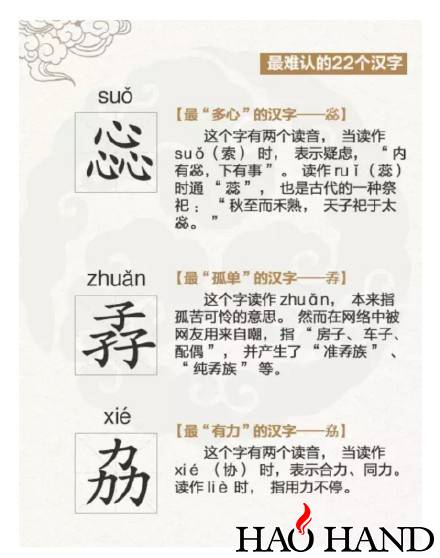 最难认的22个汉字
suǒ
惢
【最“多心”的汉字——惢】
这个字有两个读音，当读作
suǒ（索）时，表示疑虑，“内
有惢，下有事”。读作ruǐ（蕊）
时通“蕊”，也是古代的一种祭
祀：“秋至而禾熟，天子祀于太
惢。”
zhuǎn
孨
【最“孤单”的汉字——孨】
这个字读作zhuǎn，本来指
孤苦可怜的意思。然而在网络中被
网友用来自嘲，指“房子、车子、
配偶”，并产生了“准孨族”、
“纯孨族”等。
xié
劦
【最“有力”的汉字——劦】
这个字有两个读音，当读作
xié（协）时，表示合力、同力。
读作liè时，指用力不停。
HAO HAND